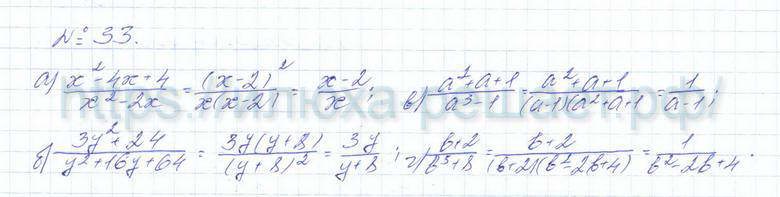 № 33.
а) x²-4x+4 / x²-2x = (x-2)² / x(x-2) = x-2 / x; в) a²+a+1 / a³-1 = a²+a+1 / (a-1)(a²+a+1 = 1 / a-1;
б) 3y²+24 / y²+16y+64 = 3y(y+8) / (y+8)² = 3y / y+8; г) b+2 / b³+8 = b+2 / (b+2)(b²-2b+4) = 1 / b²-2b+4.